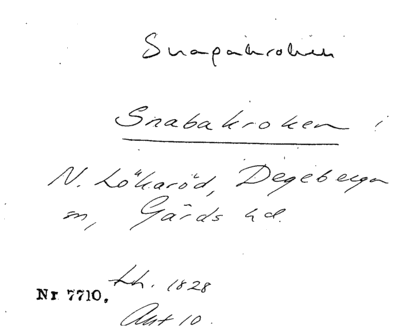 Snapakroken
Snabakroken !
N. Lökaröd, Degeberga
sn, Gärds hd.
Lh. 1828
Nr 7710.
Akt 10.